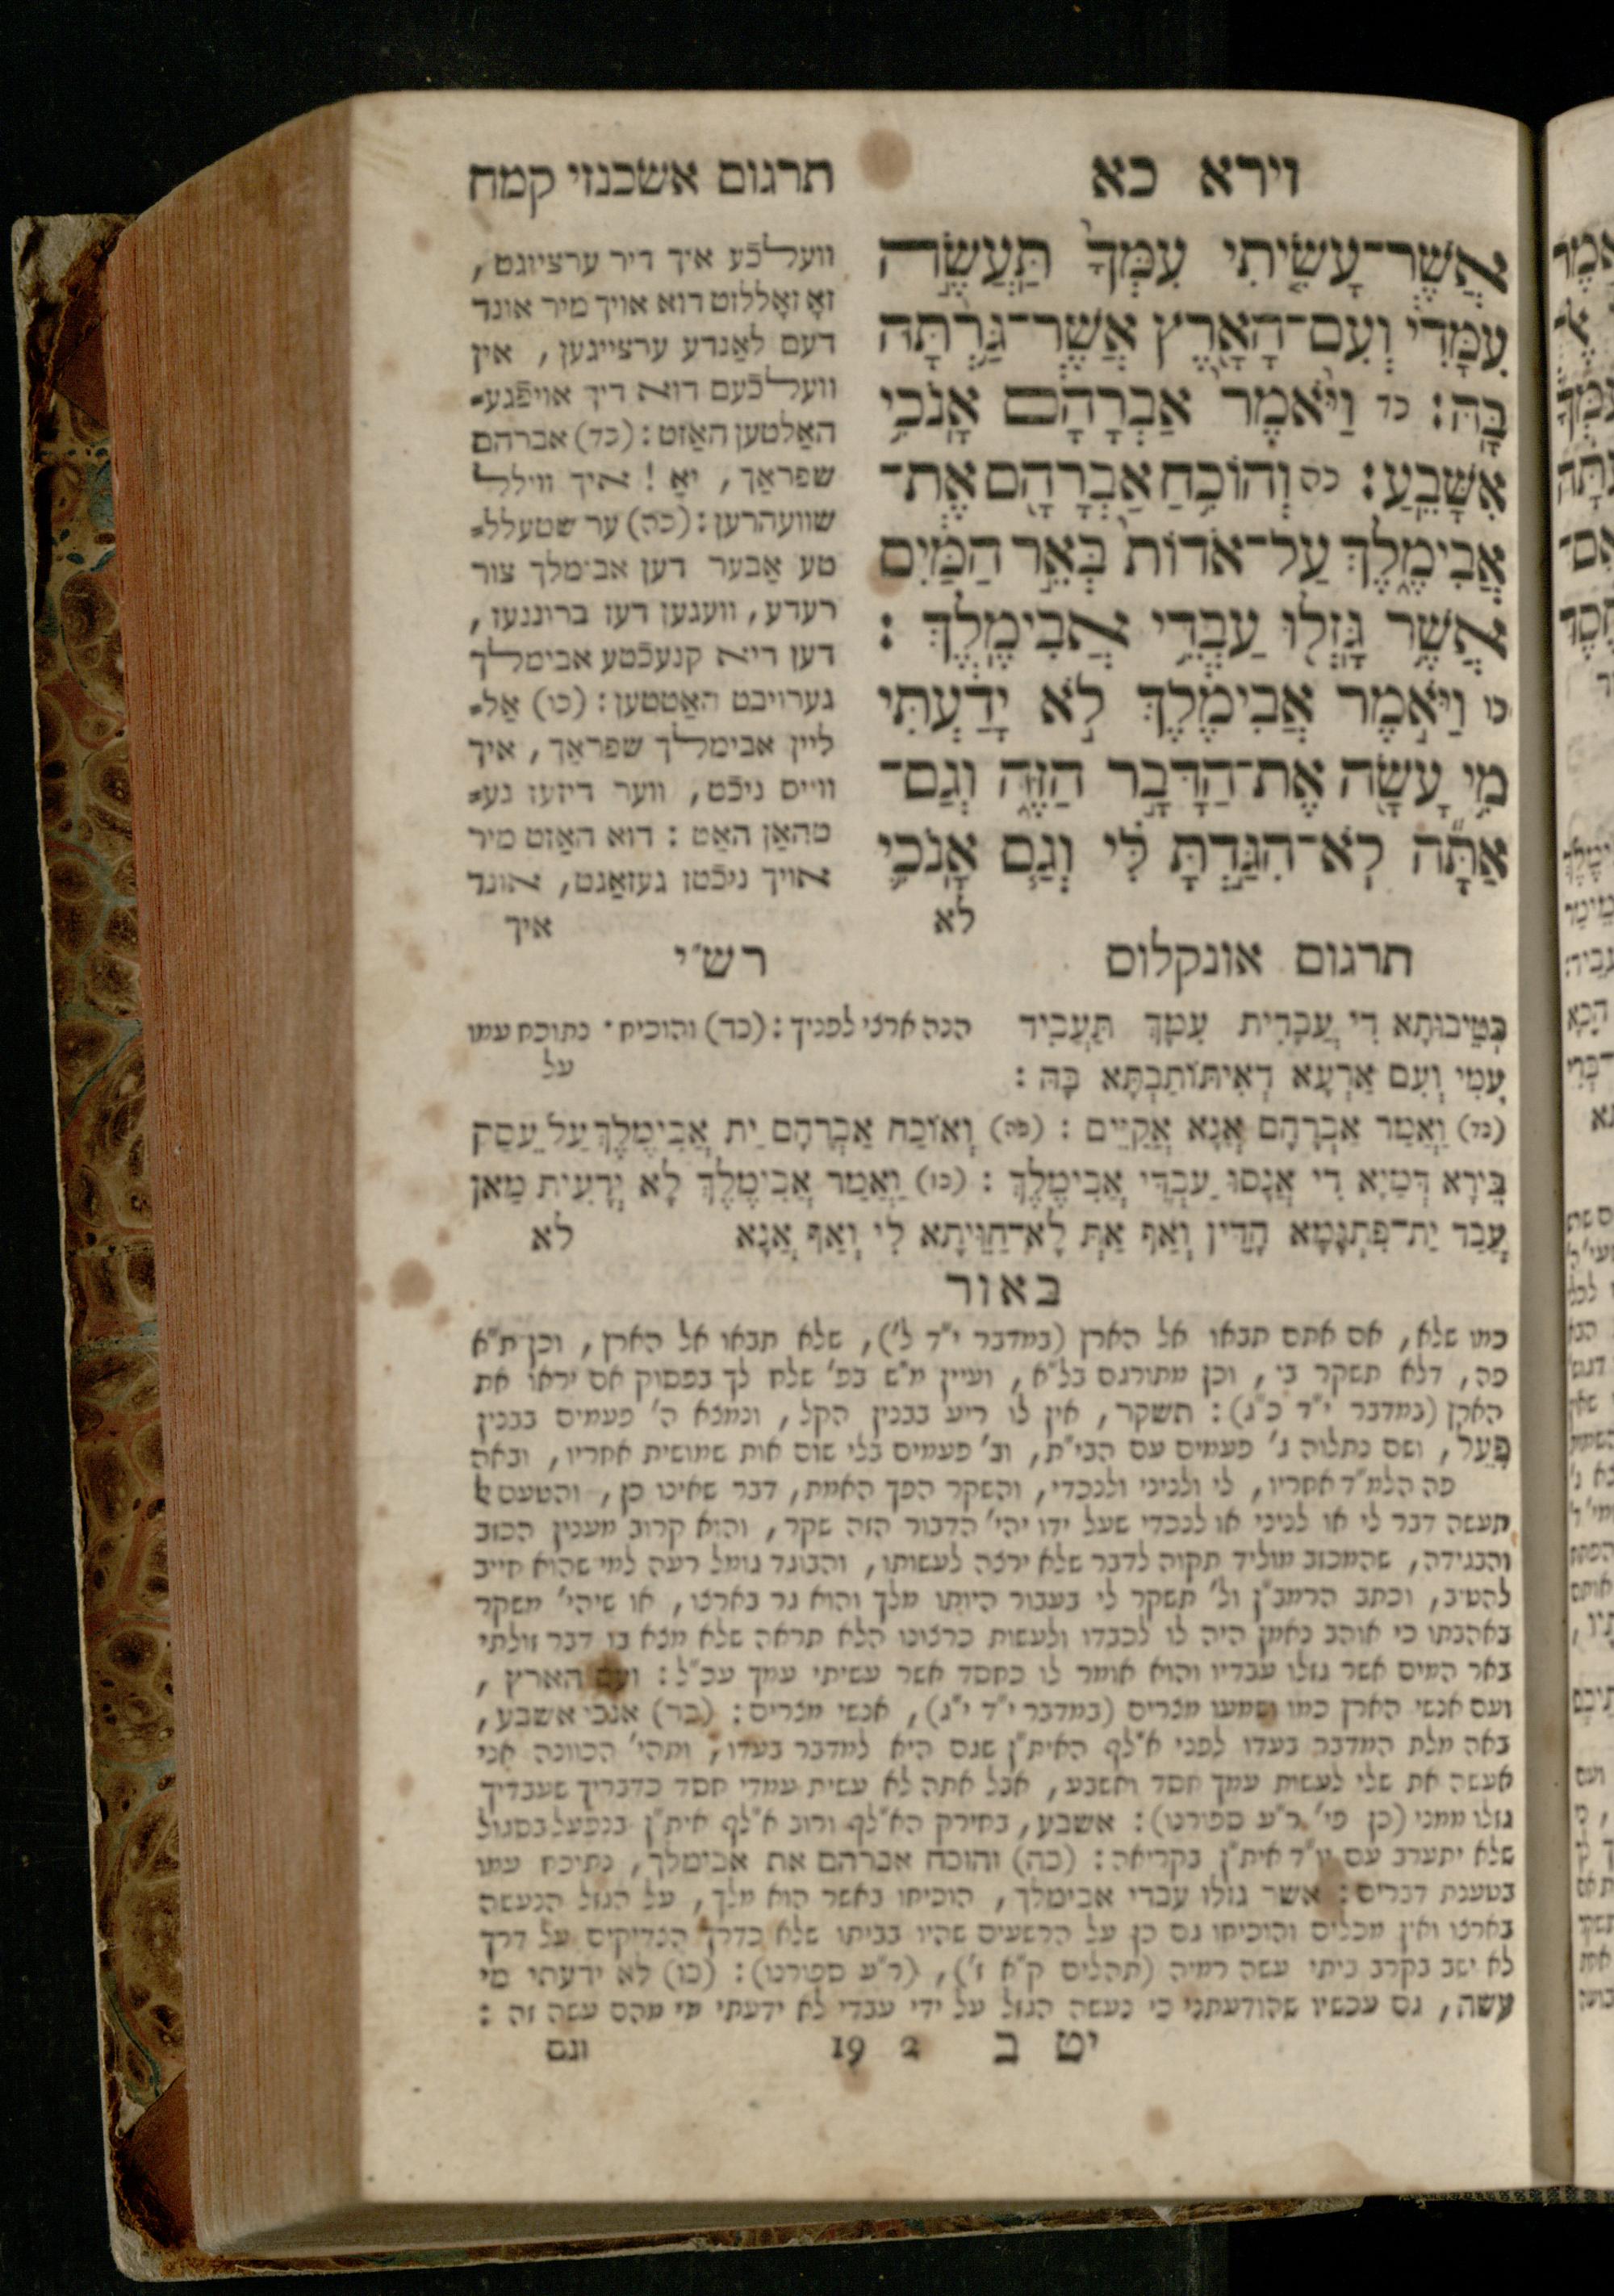 וירא כא
תרגום אשכנזי קמח
אֲשֶׁר־עָשִׂיתִי עִמְּךָ תַּעֲשֶׂה
עִמָּדִי וְעִם־הָאָרֶץ אֲשֶׁר־גַּרְתָּה
בָּהּ׃ כד וַיֹּאמֶר אַבְרָהָם אָנֹכִי
אִשָּׁבֵעַ׃ כה וְהוֹכִחַ אַבְרָהָם אֶת־
אֲבִימֶלֶךְ עַל־אֹדוֹת בְּאֵר הַמַּיִם
אֲשֶׁר גָּזְלוּ עַבְדֵי אֲבִימֶלֶךְ׃
כו וַיֹּאמֶר אֲבִימֶלֶךְ לֹא יָדַעְתִּי
מִי עָשָׂה אֶת־הַדָּבָר הַזֶּה וְגַם־
אַתָּה לֹא־הִגַּדְתָּ לִּי וְגַם אָנֹכִי
לא
וועלכֿע איך דיר ערצייגט,
זאָ זאָללזט דוא אויך מיר אונד
דעם לאַנדע ערצייגען, אין
וועלכֿעם דוא דיך אויפֿגע⸗
האַלטען האַזט: (כד) אברהם
שפראַך, יאַ! איך ווילל
שווערהען: (כה) ער שטעלל⸗
טע אַבער דען אבימלך צור
רעדע, וועגען דעז ברוננען,
דען דיא קנעכֿטע אבימלך
גערויבט האַטטען: (כו) אַל⸗
ליין אבימלך שפראַך, איך
ווייס ניכֿט, ווער דיזעז גע⸗
טהאַן האַט: דוא האַזט מיר
אויך ניכֿטז געזאַגט, אונד
איך
תרגום אונקלוס
בְּטֵיבוּתָא דִי עֲבָדִית עִמָּךְ תַּעֲבֵיד
עִמִּי וְעִם אַרְעָא דְאִיתּוֹתַבְתָּא בָּהּ:
(כד) וַאֲמַר אַבְרָהָם אֲנָא אֲקַיֵּים: (כה) וְאוֹכַח אַבְרָהָם יַת אֲבִימֶלֶךְ עַל עֵסַק
בֵּירָא דְמַיָּא דִי אֲנָסוּ עַבְדֵי אֲבִימֶלֶךְ: (כו) וַאֲמַר אֲבִימֶלֶךְ לָא יְדָעִית מַאן
עֲבַד יַת־פִּתְגָּמָא הָדֵין וְאַף אַתְּ לָא־חַוֵּיתָא לִי וְאַף אֲנָא
לא
רש"י
הנה ארצי לפניך: (כד) והוכיח. נתוכח עמו
על
באור
כמו שלא, אם אתם תבאו אל הארץ (במדבר י"ד ל'), שלא תבאו אל הארץ, וכן ת"א
פה, דלא תשקר בי, וכן מתורגם בל"א, ועיין מ"ש בפ' שלח לך בפסוק אם יראו את
הארץ (במדבר י"ד כ"ג): תשקר, אין לו ריע בבנין הקל, ונמצא ה' פעמים בבנין
פִּעֵל, ושם נתלוה ג' פעמים עם הבי"ת, וב' פעמים בלי שום אות שמושית אחריו, ובאה
פה הלמ"ד אחריו, לי ולניני ולנכדי, והשקר הפך האמת, דבר שאינו כן, והטעם
תעשה דבר לי או לניני או לנכדי שעל ידו יהי' הדבור הזה שקר, והוא קרוב מענין הכזב
והבגידה, שהמכזב מוליד תקוה לדבר שלא ירצה לעשותו, והבוגד גומל רעה למי שהוא חייב
להטיב, וכתב הרמב"ן ול' תשקר לי בעבור היותו מלך והוא גר בארצו, או שיהי' משקר
באהבתו כי אוהב נאמן היה לו לכבדו ולעשות כרצונו הלא תראה שלא מצא בו דבר זולתי
באר המים אשר גזלו עבדיו והוא אומר לו כחסד אשר עשיתי עמך עכ"ל: ועם הארץ,
ועם אנשי הארץ כמו ושמעו מצרים (במדבר י"ד י"ג), אנשי מצרים: (כד) אנכי אשבע,
באה מלת המדבר בעדו לפני א"לף האית"ן שגם היא למדבר בעדו, ותהי' הכוונה אני
אעשה את שלי לעשות עמך חסד ואשבע, אבל אתה לא עשית עמדי חסד כדבריך שעבדיך
גזלו ממני (כן פי' ר"ע ספורנו): אשבע, בחירק הא"לף ורוב א"לף אית"ן בנפעל בסגול
שלא יתערב עם יו"ד אית"ן בקריאה: (כה) והוכח אברהם את אבימלך, נתיכח עמו
בטענת דברים: אשר גזלו עבדי אבימלך, הוכיחו באשר הוא מלך, על הגזל הנעשה
בארצו ואין מכלים והוכיחו גם כן על הרשעים שהיו בביתו שלא כדרך הצדיקים על דרך
לא ישב בקרב ביתי עשה רמיה (תהלים ק"א ז'), (ר"ע ספורנו): (כו) לא ידעתי מי
עשה, גם עכשיו שהודעתני כי נעשה הגזל על ידי עבדי לא ידעתי מי מהם עשה זה:
יט ב 2 19
וגם